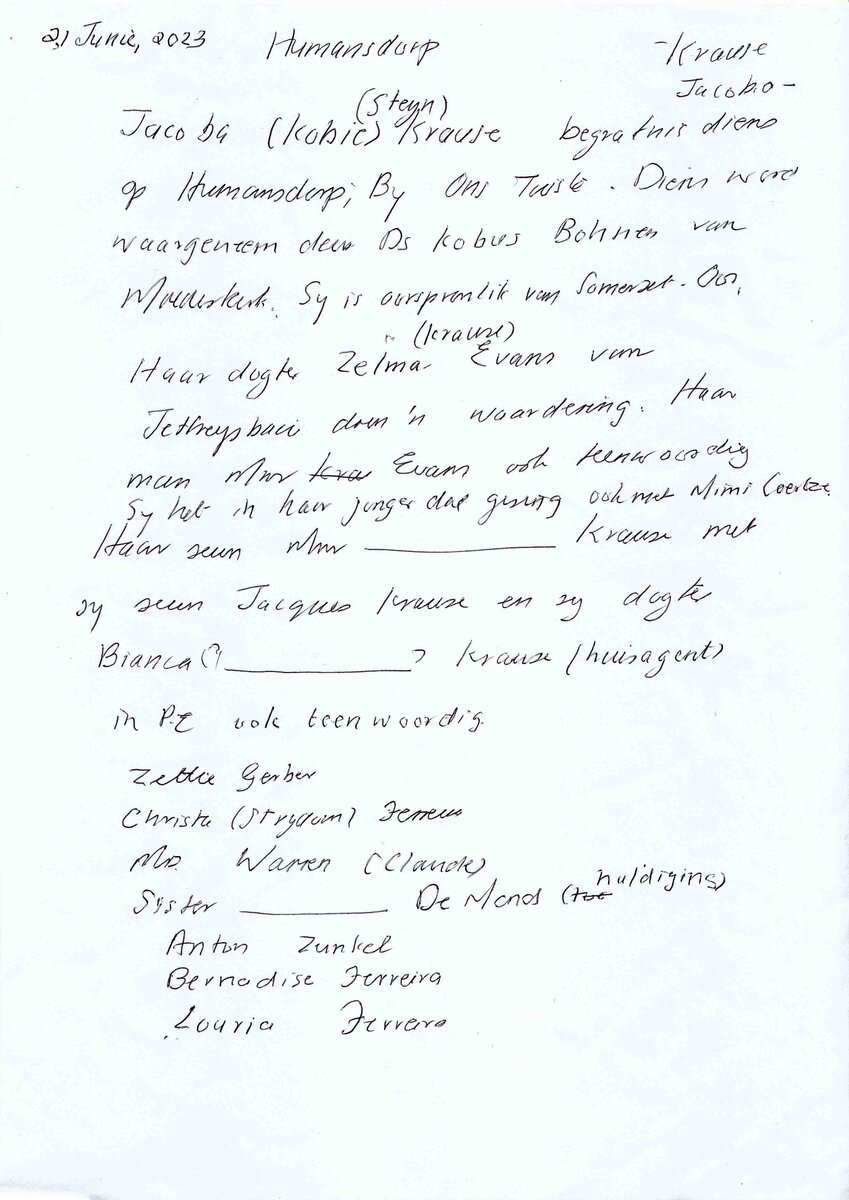 21 Junie, 2023 Humansdorp -Krause
Jacoba-
(Steyn)
Jacoba (Kobie) Krause begrafnis diens
op Humansdorp, By Ons Tuiste. Diens word
waargeneem deur Ds Kobus Bohnen van
Moederkerk. Sy is oorspronlik van Somerset-Oos.
(Krause)
Haar dogter Zelma Evans van
Jeffreysbaai doen 'n waardering. Haar
man Mnr Evans ook teenwoordig
Sy het in haar jonger dae gesing ook met Mimi Coertze
Haar seun Mnr ____________ Krause met
sy seun Jacques Krause en sy dogter
Bianca(? ____________) Krause (huisagent)
in P.E ook teenwoordig.
Zettie Gerber
Christa (Strydom)
Mr. Warren (Claude)
Syster __________ De Menos (huldiging)
Anton Zunkel
Bernadise Ferreira
Louria Ferreira